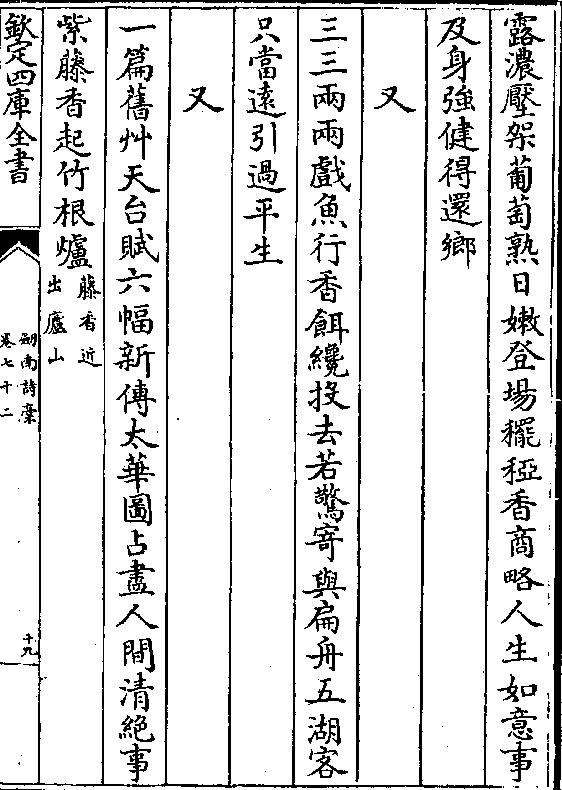 露濃壓架葡萄熟日嫩登場䆉稏香商略人生如意事
及身強健得還鄉
又
三三兩兩戲魚行香餌纔投去若驚寄與扁舟五湖客
只當遠引過平生
又
一篇舊艸天台賦六幅新傳太華圖占盡人間清絕事
紫藤香起竹根爐藤香近出廬山
欽定四庫全書
劒南詩稾
卷七十二
十九